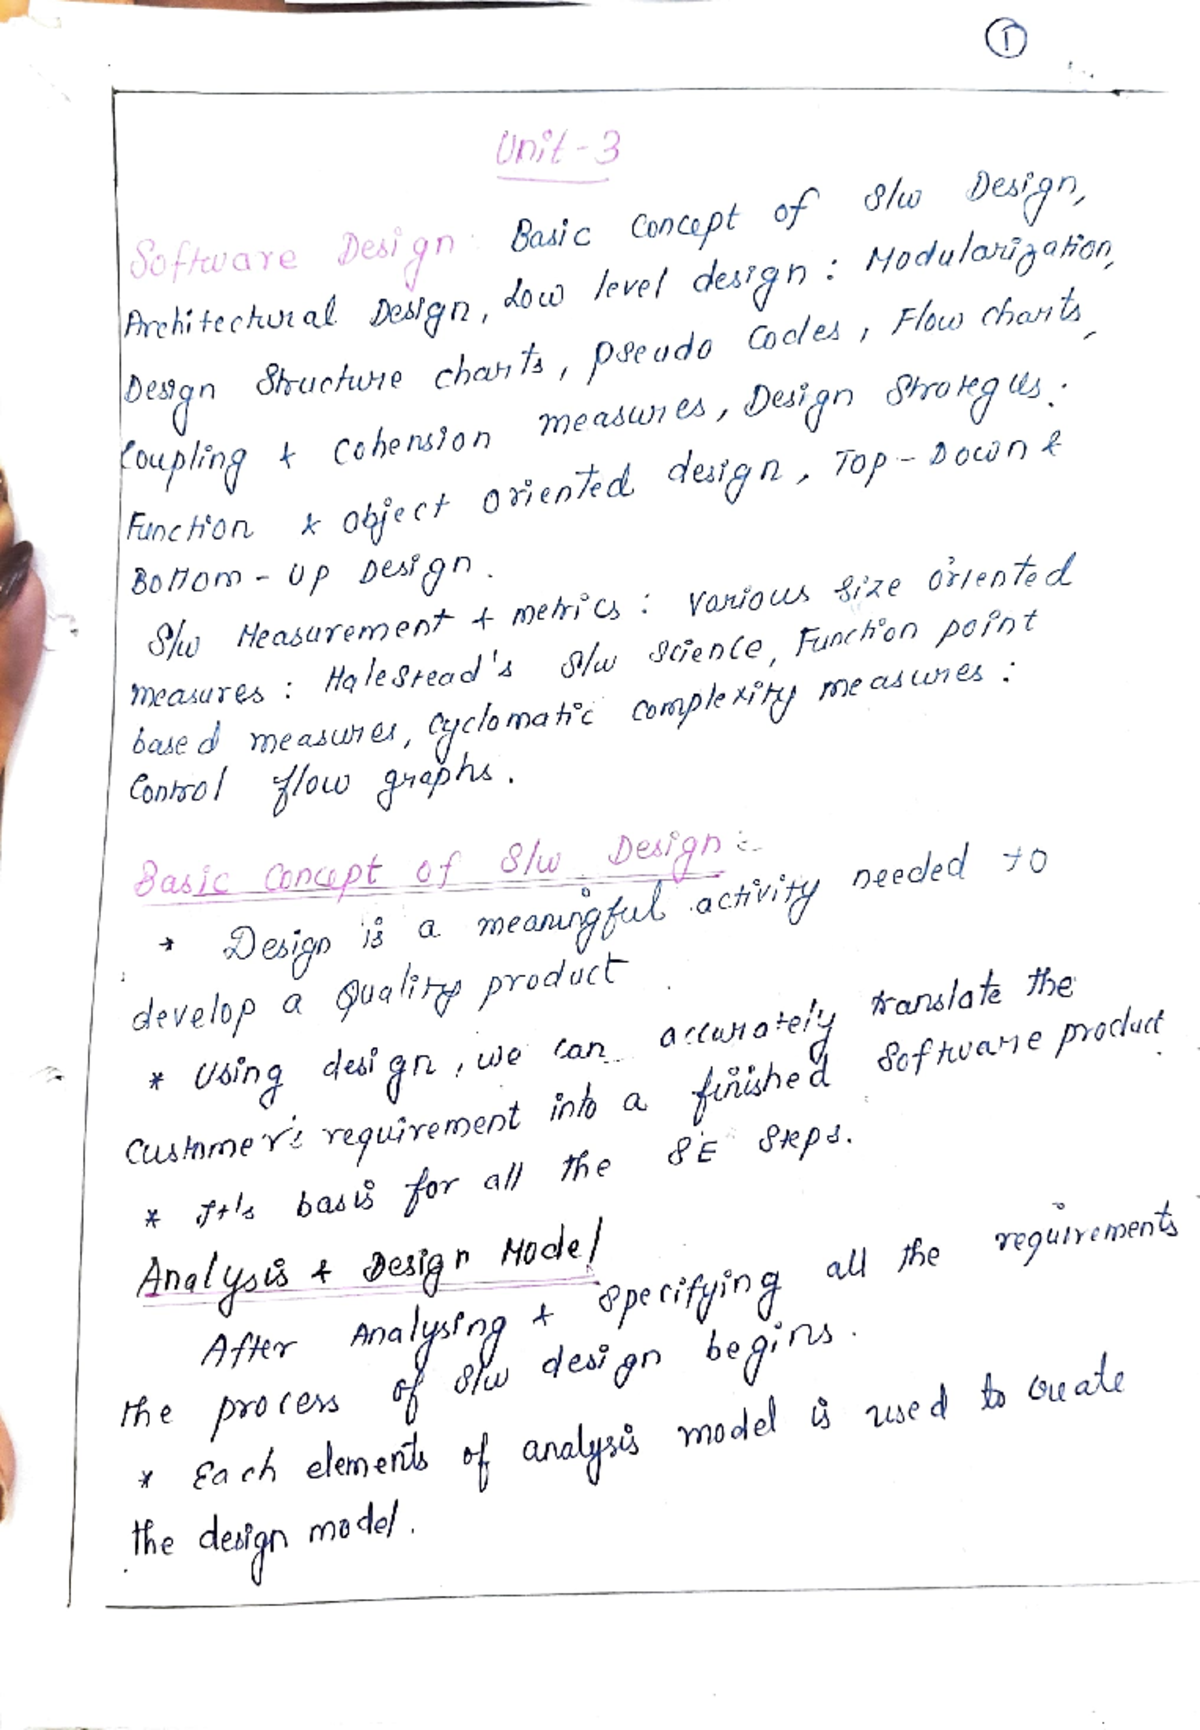 1
Unit-3
Software Design: Basic Concept of S/w Design,
Architectural Design, Low level design: Modularization,
Design Structure charts, Pseudo Codes, Flow charts,
Coupling & Cohension measures, Design Strategies:
Function & object oriented design, Top-Down &
Bottom-Up Design.
S/w Measurement & metrics: Various size oriented
measures: HaleStead's S/w Science, Function point
based measures, Cyclomatic complexity measures:
Control flow graphs.
Basic Concept of S/w Design:-
* Design is a meaningful activity needed to
develop a Quality product
* Using design, we can accurately translate the
Customer's requirement into a finished Software product
* It's basis for all the SE Steps.
Analysis & Design Model
After Analysing & Specifying all the requirements
the process of S/w design begins.
* Each elements of analysis model is used to create
the design model.